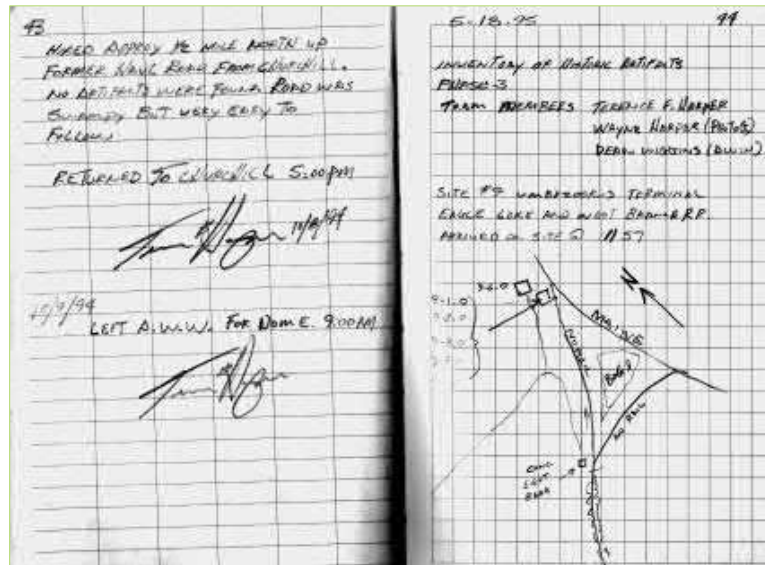 43
HIKED APPROX ½ MILE NORTH UP
FORMER HAUL ROAD FROM CHURCHILL.
NO ARTIFACTS WERE FOUND. ROAD WAS
SWAMPY BUT VERY EASY TO
FOLLOW
RETURNED TO CHURCHILL 5:00 PM
10/8/94
10/9/94
LEFT A.W.W. FOR HOME 9:00 AM
5-18-95 44
INVENTORY OF HISTORIC ARTIFACTS
PHASE-3
TEAM MEMBERS TERENCE F. HARPER
WAYNE HARPER (PHOTOS)
DEAN WIGGINS (A.W.W.)
SITE #9 UMBAZOOKSUS TERMINAL
EAGLE LAKE AND WEST BRANCH R.R.
ARRIVED ON SITE @ 1157
N
9-6.0
9-1.0
MAINE
NO RAIL
CONC.